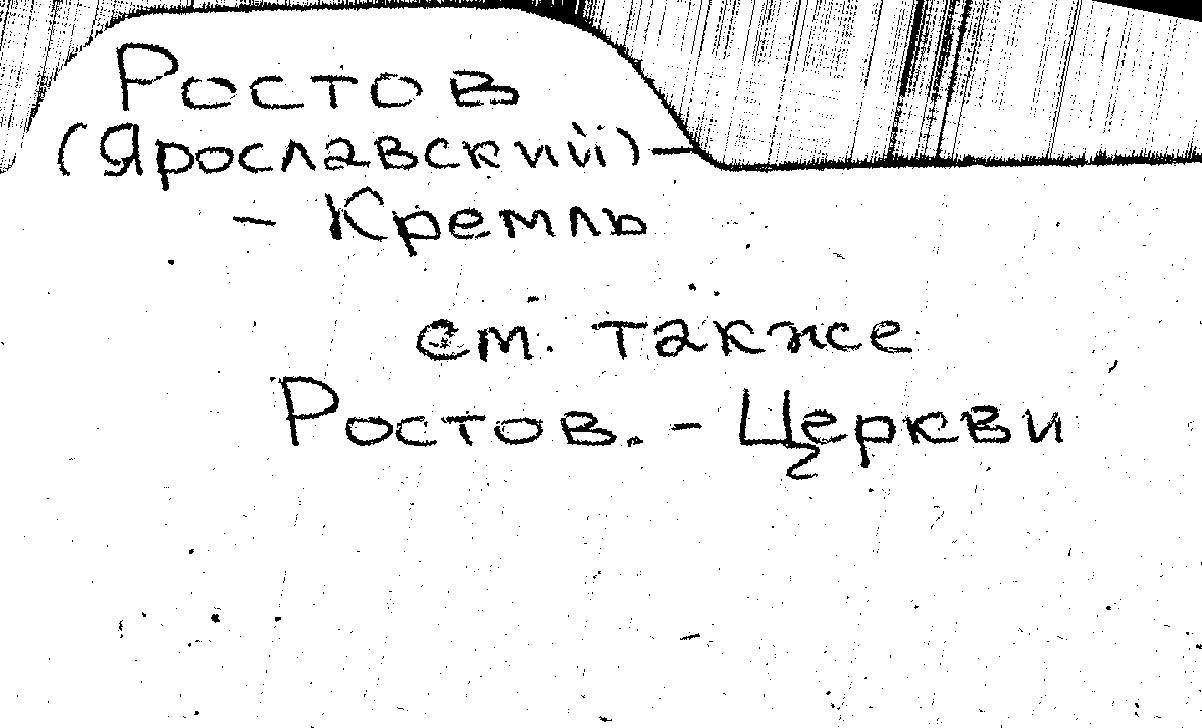 Ростов
(Ярославский) -
- Кремль
см. также
Ростов. - Церкви